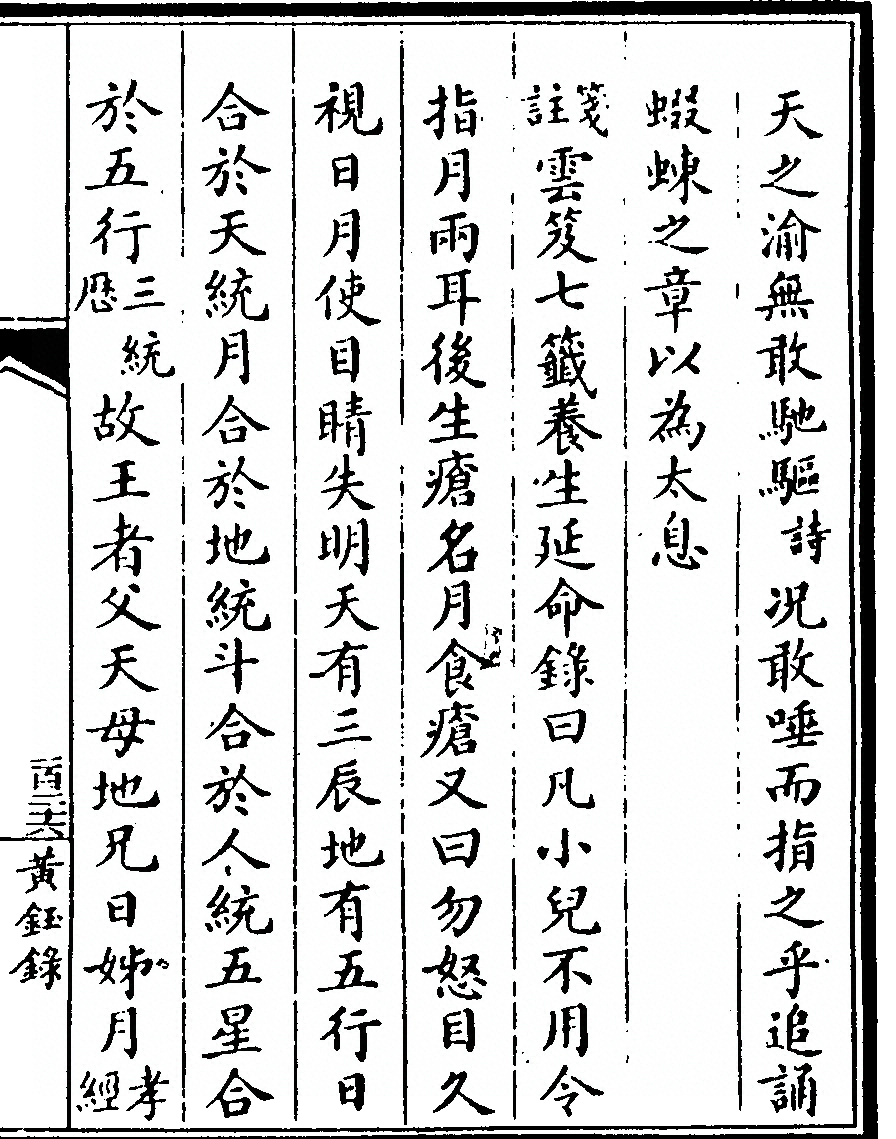 天之渝無敢馳驅詩况敢唾而指之乎追誦
蝃蝀之章以為太息
箋註雲笈七籤養生延命錄曰凡小兒不用令
指月兩耳後生瘡名月食瘡又曰勿怒目久
視日月使目睛失明天有三辰地有五行日
合於天統月合於地統斗合於人統五星合
於五行三統歷故王者父天母地兄日姊月孝經
百三六
黃鈺錄